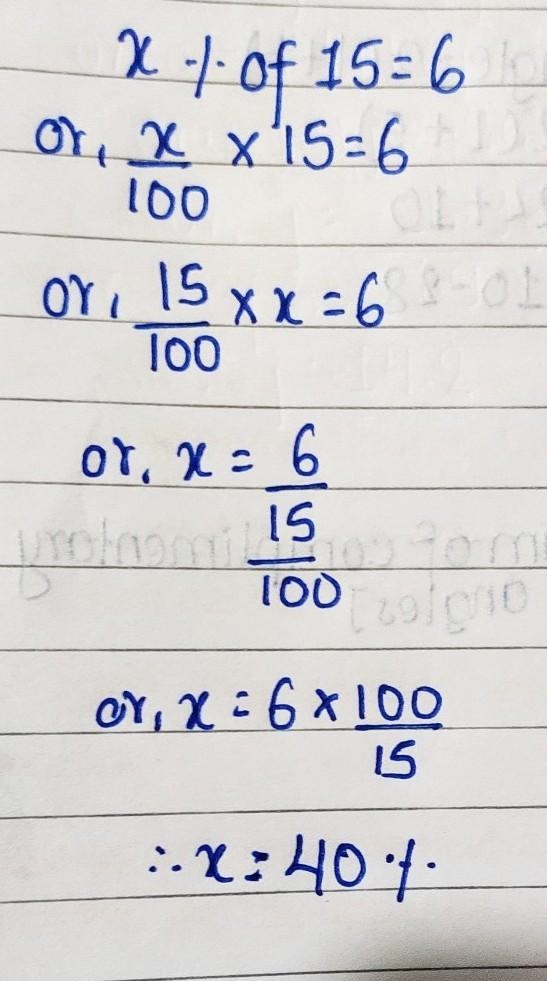 x % of 15 = 6
or, x/100 × 15 = 6
or, 15/100 × x = 6
or, x = 6/(15/100)
or, x = 6 × 100/15
∴ x = 40 %